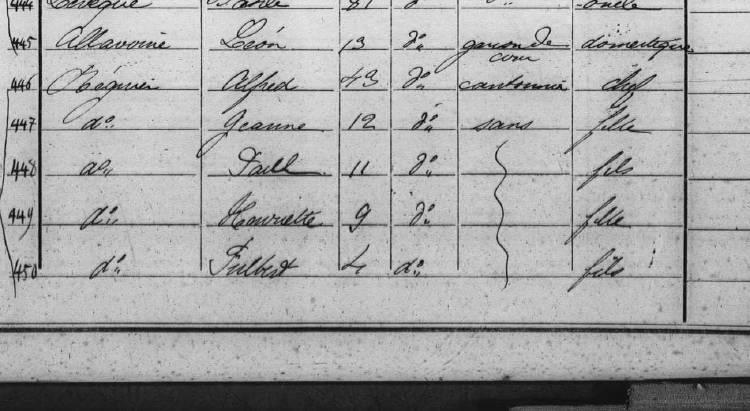 444 Levêque 81 do oncle
445 Allavoine Léon 13 do garçon de cour domestique
446 Régnier Alfred 43 do cantonnier chef
447 do Jeanne 12 do sans fille
448 do Paul 11 do fils
449 do Henriette 9 do fille
450 do Fulbert 4 do fils